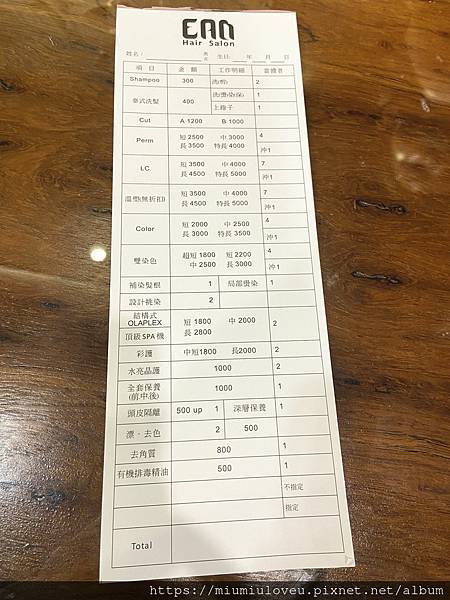 EAN
Hair Salon
姓名： 男 女 生日: 年 月 日
項 目 金 額 工作明細 當獲者
Shampoo 300 洗(剪) 2
泰式洗髮 400 洗(燙)染(保) 1
上捲子 1
Cut A 1200 B 1000
Perm 短 2500 中 3000 4
長 3500 特長 4000 沖1
LC 短 3500 中 4000 7
長 4500 特長 5000 沖1
溫塑(無折扣) 短 3500 中 4000 7
長 4500 特長 5000 沖1
Color 短 2000 中 2500 4
長 3000 特長 3500 沖1
雙染色 超短 1800 短 2200 4
中 2500 長 3000 沖1
補染髮根 1 局部燙染 1
設計挑染 2
結構式 OLAPLEX 短 1800 中 2000 2
頂級 SPA 機 長 2800
彩護 中短1800 長2000 2
水亮晶護 1000 2
全套保養 (前.中.後) 1000 1
頭皮隔離 500 up 1 深層保養 1
漂．去色 2 500
去角質 800 1
有機排毒精油 500 1
不指定
指定
Total
https://miumiuloveu.pixnet.net/album